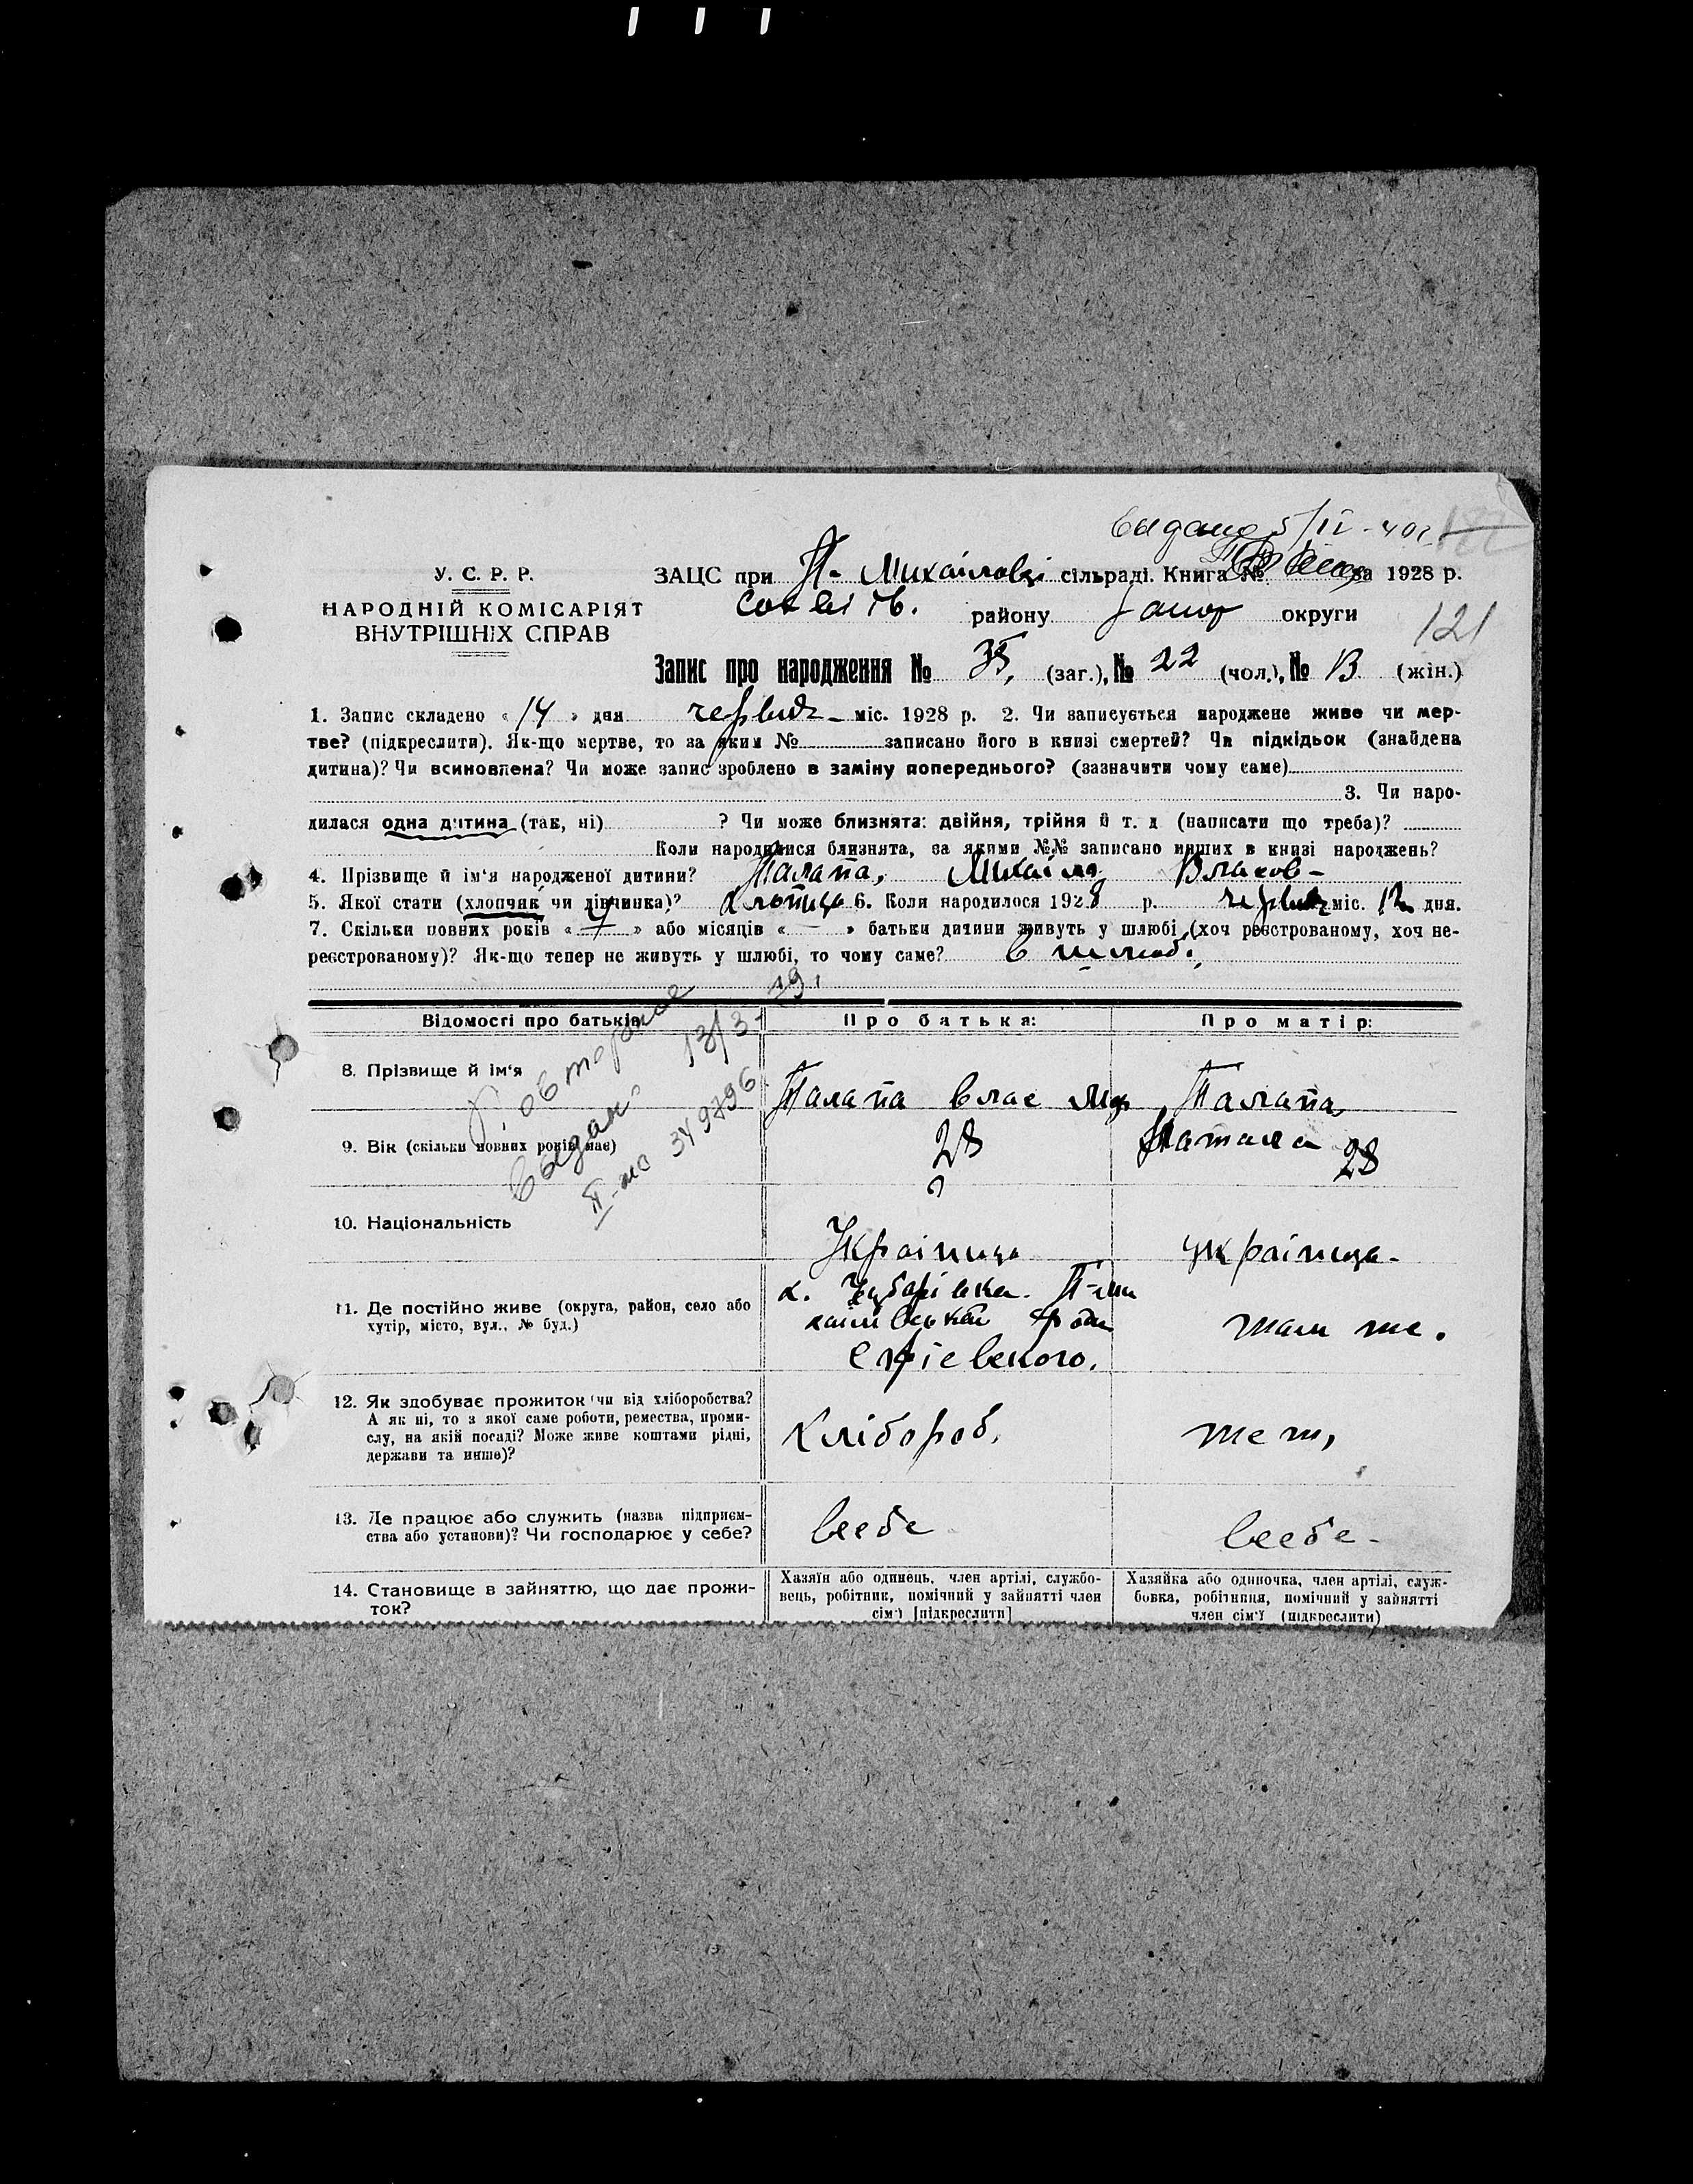 Выдано 5/IV-40г.
У. С. Р. Р.
НАРОДНІЙ КОМІСАРІЯТ
ВНУТРІШНІХ СПРАВ
ЗАЦС при П- Михаіловці сільраді. Книга № за 1928 р.
району Запор округи
121
Запис про народження № 35, (заг.), № 22 (чол.), № 13 (жін.)
1. Запис складено « 14 » дня червня міс. 1928 р. 2. Чи записується народжене живе чи мер-
тве? (підкреслити). Як-що мертве, то за яким № записано його в книзі смертей? Чи підкідьок (знайдена
дитина)? Чи всиновлена? Чи може запис зроблено в заміну попереднього? (зазначити чому саме)
3. Чи наро-
дилася одна дитина (так, ні) ? Чи може близнята: двійня, трійня й т. д (написати що треба)?
Коли народилися близнята, за якими №№ записано инших в книзі народжень?
4. Прізвище й ім'я народженої дитини? Палапа, Михаіло Власов-
5. Якої стати (хлопчяк чи дівчинка)? Хлопиць 6. Коли народилося 1928 р. червня міс. 12 дня.
7. Скільки повних років « 7 » або місяців « — » батьки дитини живуть у шлюбі (хоч реєстрованому, хоч не-
реєстрованому)? Як-що тепер не живуть у шлюбі, то чому саме? в шлюбі
Відомості про батьків
Про батька:
Про матір:
Повторное
выдано 13/3- 79.
II-ЖС 349796
8. Прізвище й ім'я
Палапа Влас
Палапа
Наталя
9. Вік (скільки повних років має)
28
28
10. Національність
Украінць
украінца-
11. Де постійно живе (округа, район, село або
хутір, місто, вул., № буд.)
х. Чубарівка П-Ми
хаілівської
там же.
12. Як здобуває прожиток (чи від хліборобства?
А як ні, то з якої саме роботи, ремества, проми-
слу, на якій посаді? Може живе коштами рідні,
держави та инше)?
Хлібороб,
теж,
13. Де працює або служить (назва підприєм-
ства або установи)? Чи господарює у себе?
всебе
всебе-
14. Становище в зайняттю, що дає прожи-
ток?
Хазяїн або одинець, член артілі, службо-
вець, робітник, помічний у зайнятті член
сім'ї [підкреслити]
Хазяйка або одиночка, член артілі, служ-
бовка, робітниця, помічний у зайнятті
член сім'ї (підкреслити)